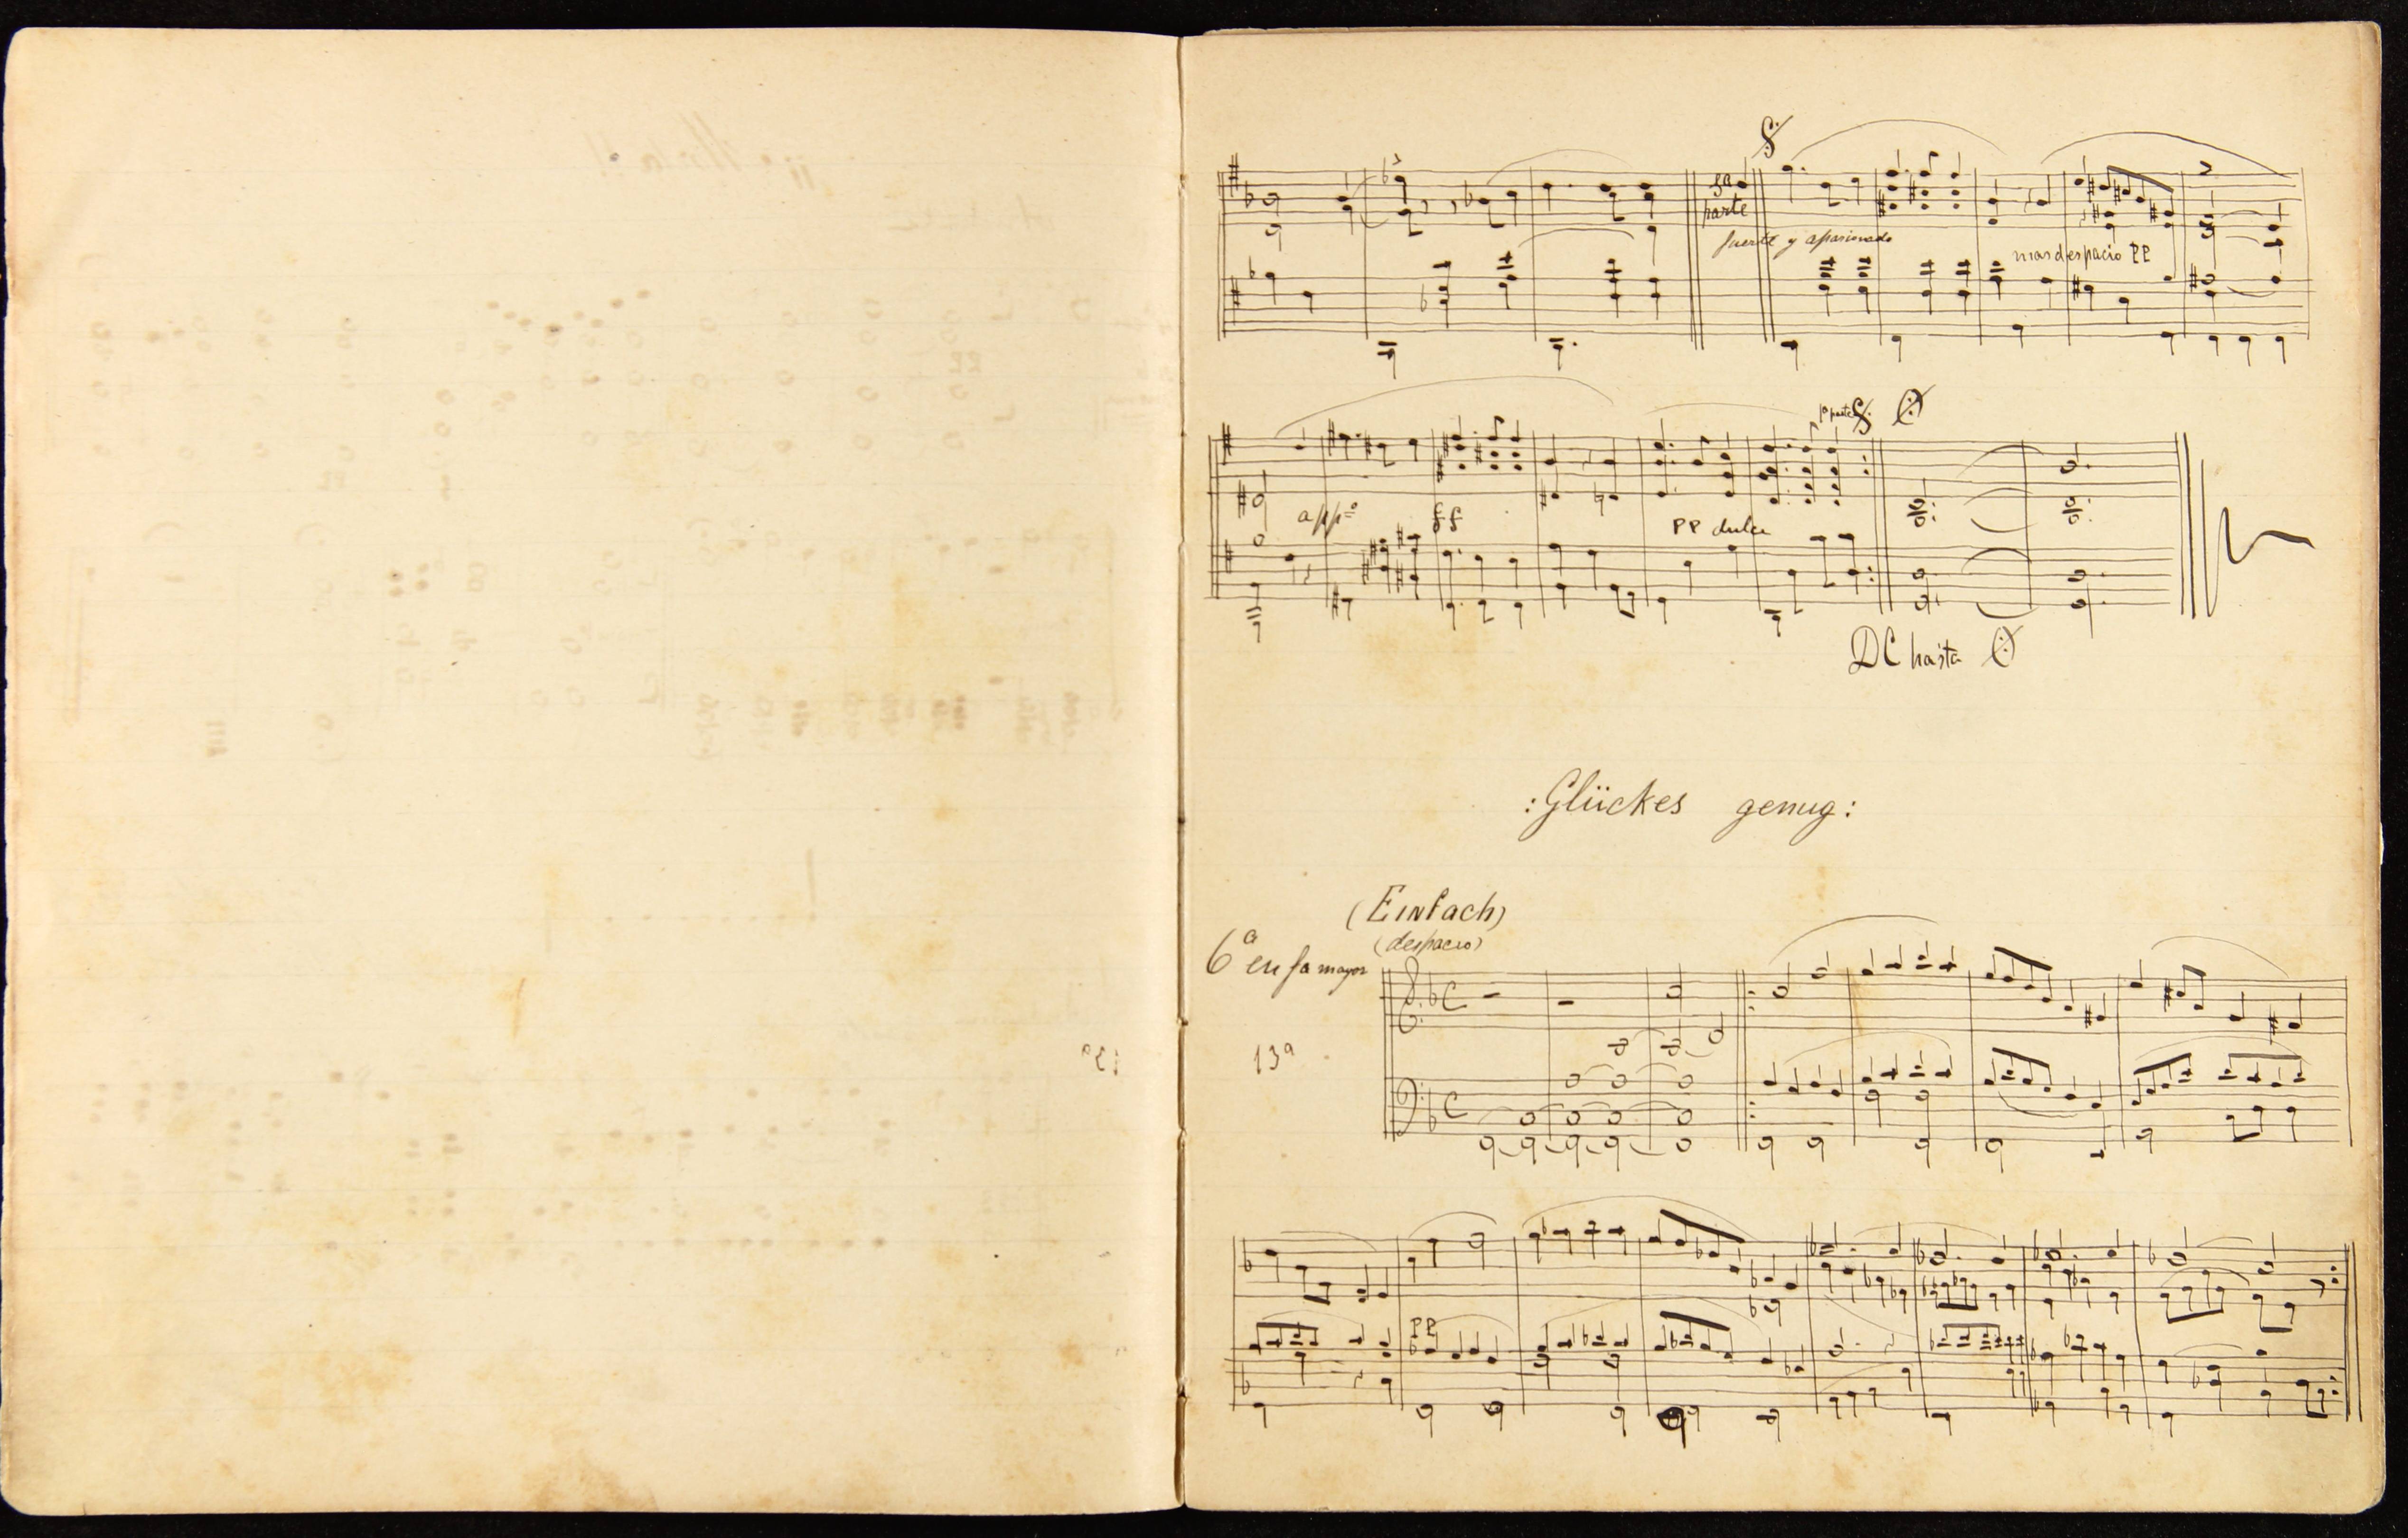 parte
fuerte y apasionado
mas despacio PP
1ª parte
appº
ff
PP dulce
DC hasta
:Glückes genug:
(Einfach)
(despacio)
6ª en fa mayor
13ª
PP